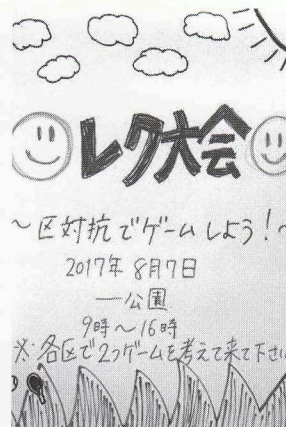 レク大会
～区対抗でゲームしよう！～
2017年 8月7日
一公園
9時～16時
※各区で2つゲームを考えて来て下さい